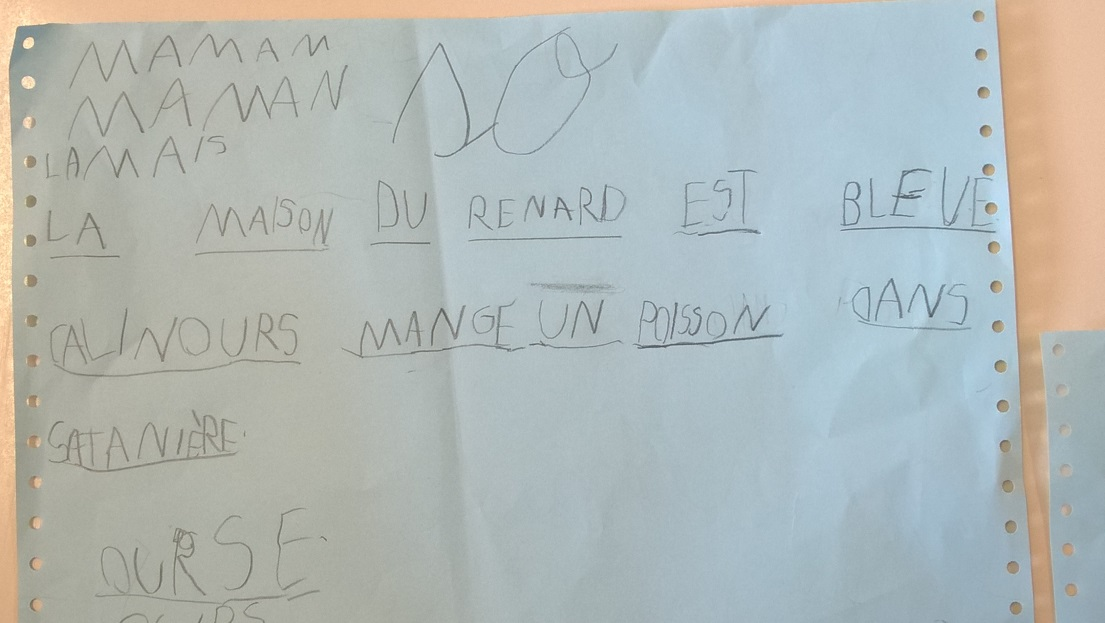 MAMAN
MAMAN
LAMAIS
LA MAISON DU RENARD EST BLEUE
CALINOURS MANGE UN POISSON DANS
SATANIÈRE.
OURSE.
OURS